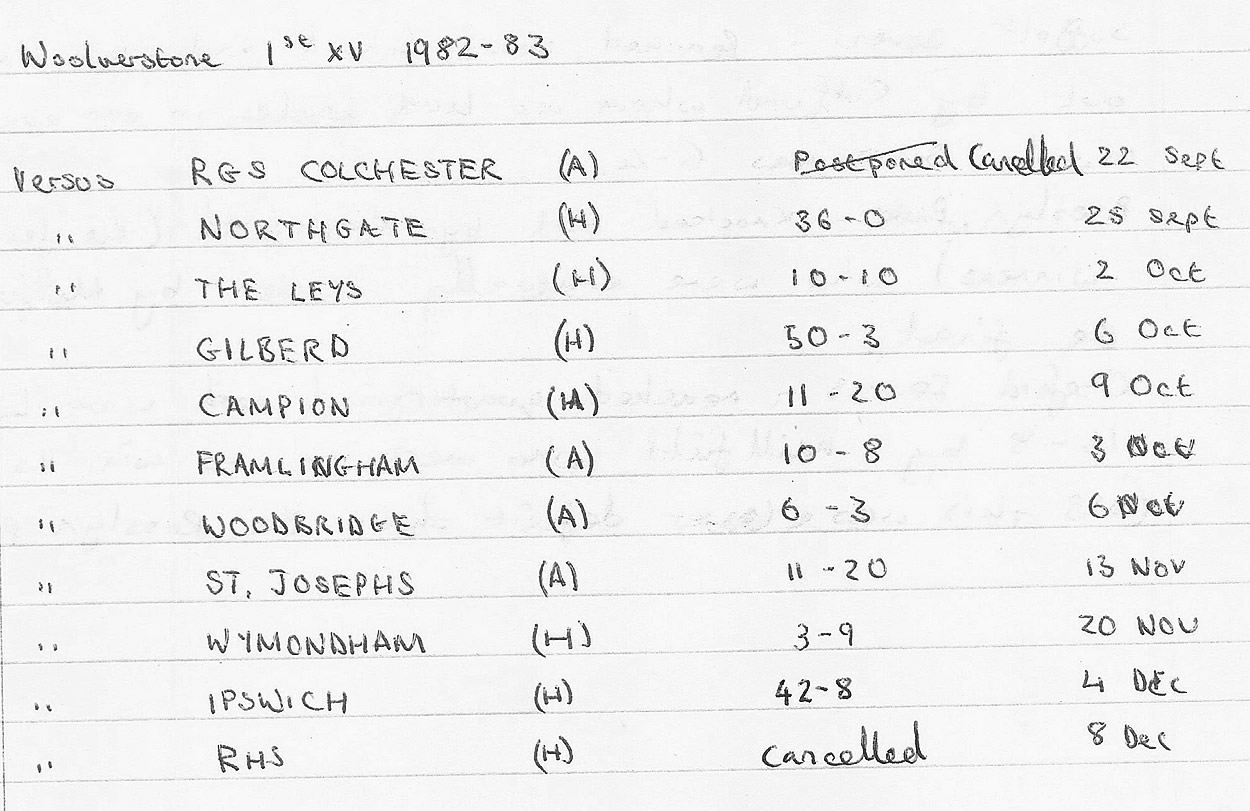 Woolverstone 1st XV 1982-83
Versus RGS COLCHESTER (A) Postponed Cancelled 22 Sept
,, NORTHGATE (H) 36-0 25 Sept
,, THE LEYS (H) 10-10 2 Oct
,, GILBERD (H) 50-3 6 Oct
,, CAMPION (H) 11-20 9 Oct
,, FRAMLINGHAM (A) 10-8 3 Nov
,, WOODBRIDGE (A) 6-3 6 Nov
,, ST. JOSEPHS (A) 11-20 13 Nov
,, WYMONDHAM (H) 3-9 20 Nov
,, IPSWICH (H) 42-8 4 Dec
,, RHS (H) Cancelled 8 Dec